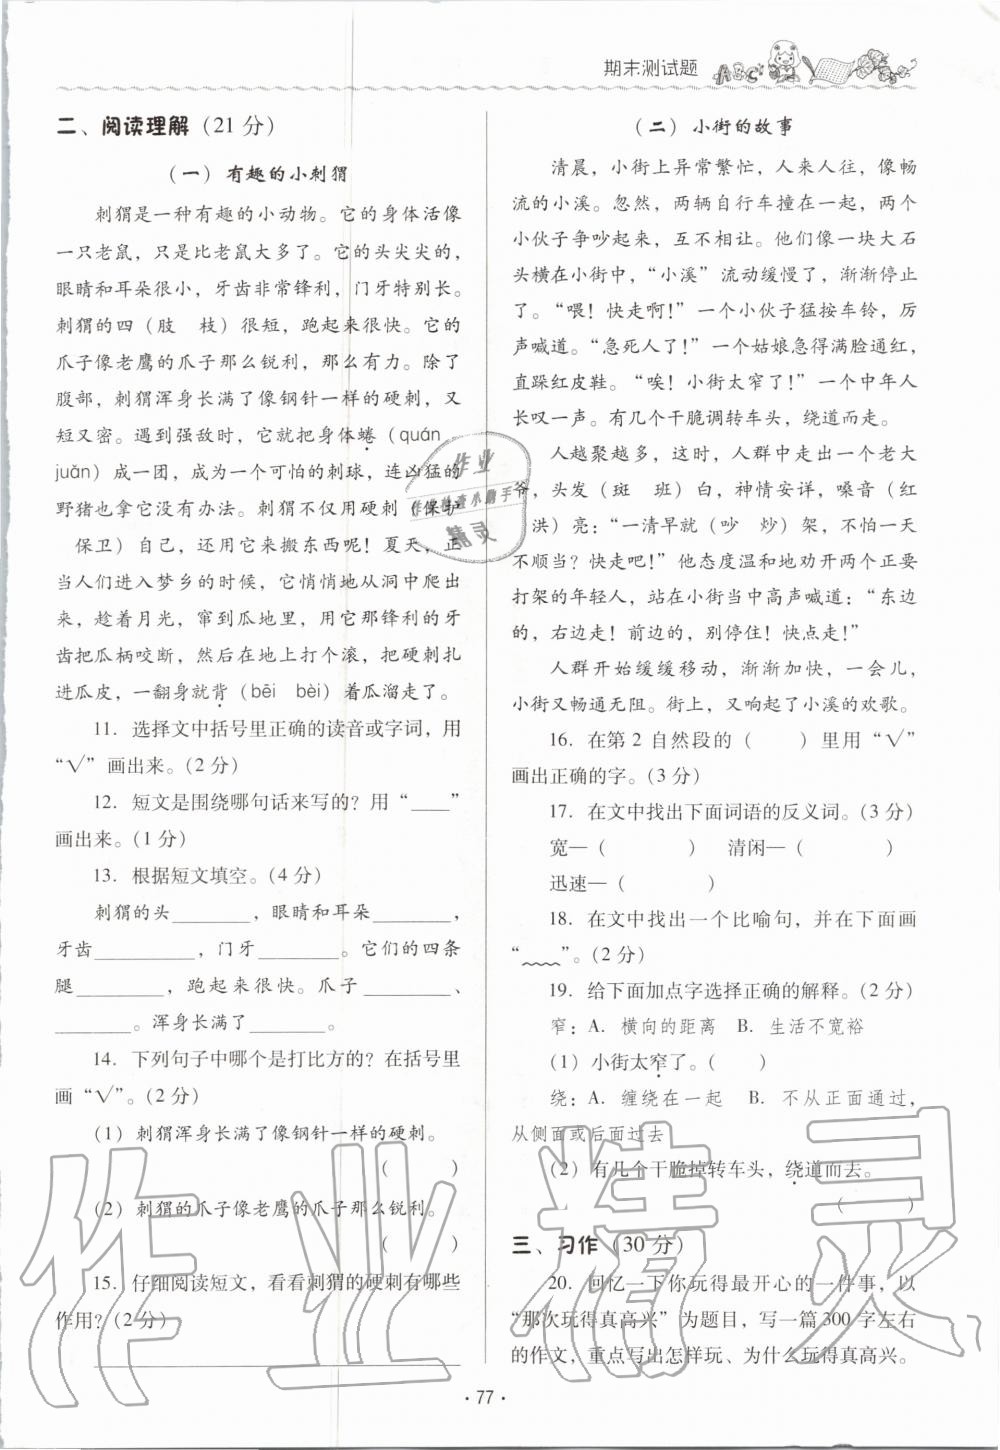 期末测试题
ABC
二、阅读理解（21 分）
（一）有趣的小刺猬
刺猬是一种有趣的小动物。它的身体活像
一只老鼠，只是比老鼠大多了。它的头尖尖的，
眼睛和耳朵很小，牙齿非常锋利，门牙特别长。
刺猬的四（肢　枝）很短，跑起来很快。它的
爪子像老鹰的爪子那么锐利，那么有力。除了
腹部，刺猬浑身长满了像钢针一样的硬刺，又
短又密。遇到强敌时，它就把身体蜷（quán
juǎn）成一团，成为一个可怕的刺球，连凶猛的
野猪也拿它没有办法。刺猬不仅用硬刺（保护
保卫）自己，还用它来搬东西呢！夏天，正
当人们进入梦乡的时候，它悄悄地从洞中爬出
来，趁着月光，窜到瓜地里，用它那锋利的牙
齿把瓜柄咬断，然后在地上打个滚，把硬刺扎
进瓜皮，一翻身就背（bēi　bèi）着瓜溜走了。
11．选择文中括号里正确的读音或字词，用
“√”画出来。（2 分）
12．短文是围绕哪句话来写的？用“____”
画出来。（1 分）
13．根据短文填空。（4 分）
刺猬的头________，眼睛和耳朵________，
牙齿__________，门牙________。它们的四条
腿_________，跑起来很快。爪子_________、
________。浑身长满了________。
14．下列句子中哪个是打比方的？在括号里
画“√”。（2 分）
（1）刺猬浑身长满了像钢针一样的硬刺。
（　　）
（2）刺猬的爪子像老鹰的爪子那么锐利。
（　　）
15．仔细阅读短文，看看刺猬的硬刺有哪些
作用？（2 分）
（二）小街的故事
清晨，小街上异常繁忙，人来人往，像畅
流的小溪。忽然，两辆自行车撞在一起，两个
小伙子争吵起来，互不相让。他们像一块大石
头横在小街中，“小溪”流动缓慢了，渐渐停止
了。“喂！快走啊！”一个小伙子猛按车铃，厉
声喊道。“急死人了！”一个姑娘急得满脸通红，
直跺红皮鞋。“唉！小街太窄了！”一个中年人
长叹一声。有几个干脆调转车头，绕道而走。
人越聚越多，这时，人群中走出一个老大
爷，头发（斑　班）白，神情安详，嗓音（红
洪）亮：“一清早就（吵　炒）架，不怕一天
不顺当？快走吧！”他态度温和地劝开两个正要
打架的年轻人，站在小街当中高声喊道：“东边
的，右边走！前边的，别停住！快点走！”
人群开始缓缓移动，渐渐加快，一会儿，
小街又畅通无阻。街上，又响起了小溪的欢歌。
16．在第 2 自然段的（　　）里用“√”
画出正确的字。（3 分）
17．在文中找出下面词语的反义词。（3 分）
宽—（　　　）　清闲—（　　　）
迅速—（　　　）
18．在文中找出一个比喻句，并在下面画
“﹏﹏”。（2 分）
19．给下面加点字选择正确的解释。（2 分）
窄：A．横向的距离　B．生活不宽裕
（1）小街太窄了。（　　）
绕：A．缠绕在一起　B．不从正面通过，
从侧面或后面过去
（2）有几个干脆掉转车头，绕道而去。
（　　）
三、习作（30 分）
20．回忆一下你玩得最开心的一件事，以
“那次玩得真高兴”为题目，写一篇 300 字左右
的作文，重点写出怎样玩、为什么玩得真高兴。
· 77 ·
作业
作业检查小助手
精灵
作业精灵